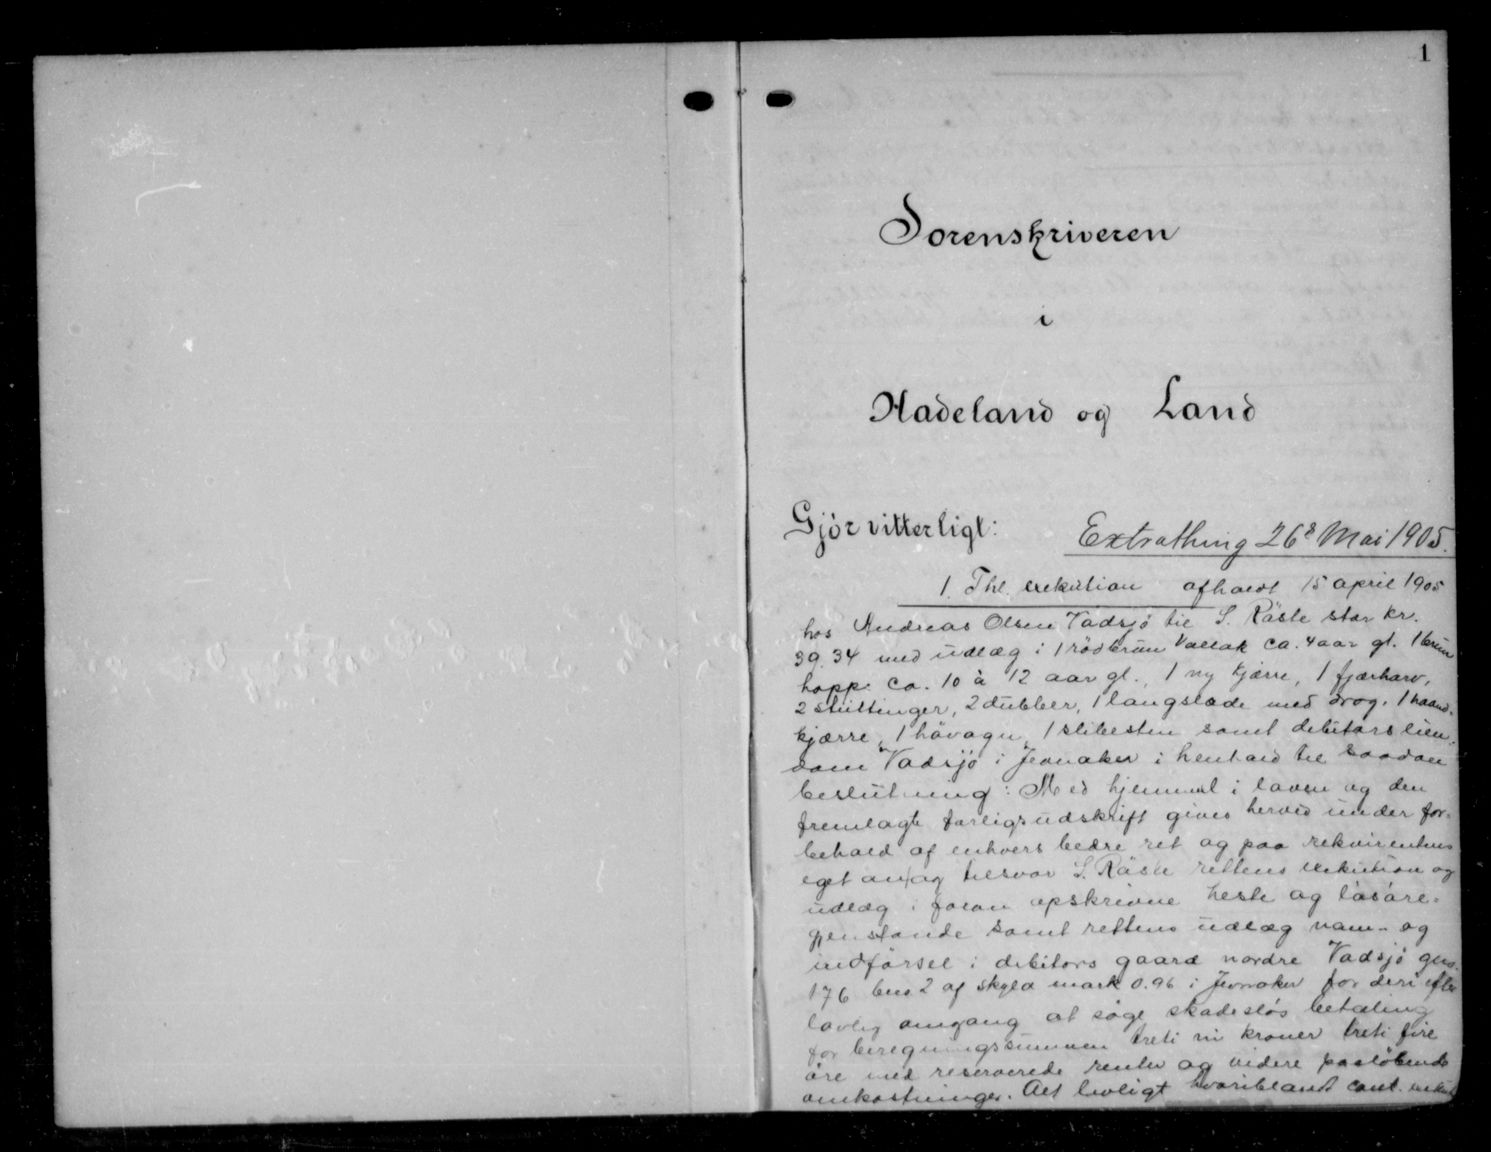 1
Sorenskriveren
i
Hadeland og Land
Gjör vitterligt:
Extrathing 26s Mai 1905.
1. Thl. exekution afholdt 15 april 1905
hos Andreas Olsen Vadsjö til S. Råstle stor kr.
39.34 med udlæg i 1 rödbrun Vallak ca. 4 aar gl. 1 brun
hoppe ca. 10 à 12 aar gl., 1 ny kjærre, 1 fjærharv,
2 stuttinger, 2 dubber, 1 langslæde med drog, 1 haand-
kjærre, 1 hövogn, 1 slibesten samt debitors eien-
dom Vadsjö i Jevnaker i henhold til saadan
beslutning: Med hjemmel i loven og den
fremlagte forligsudskrift gives herved under for-
behold af enhvers bedre ret og paa rekvirentens
eget an og tilsvar S. Råstle rettens exekution og
udlæg i foran opskrevne heste og lösöre-
gjenstande samt rettens udlæg nam- og
indförsel i debitors gaard nordre Vadsjö gno.
176 bno 2 af skyld mark 0.96 i Jevnaker for deri efter
lovlig omgang at söge skadeslös betaling
for beregningssummen treti ni kroner treti fire
öre med reserverede renter og videre paalöbende
omkostninger. Alt lovligt hvoriblandt